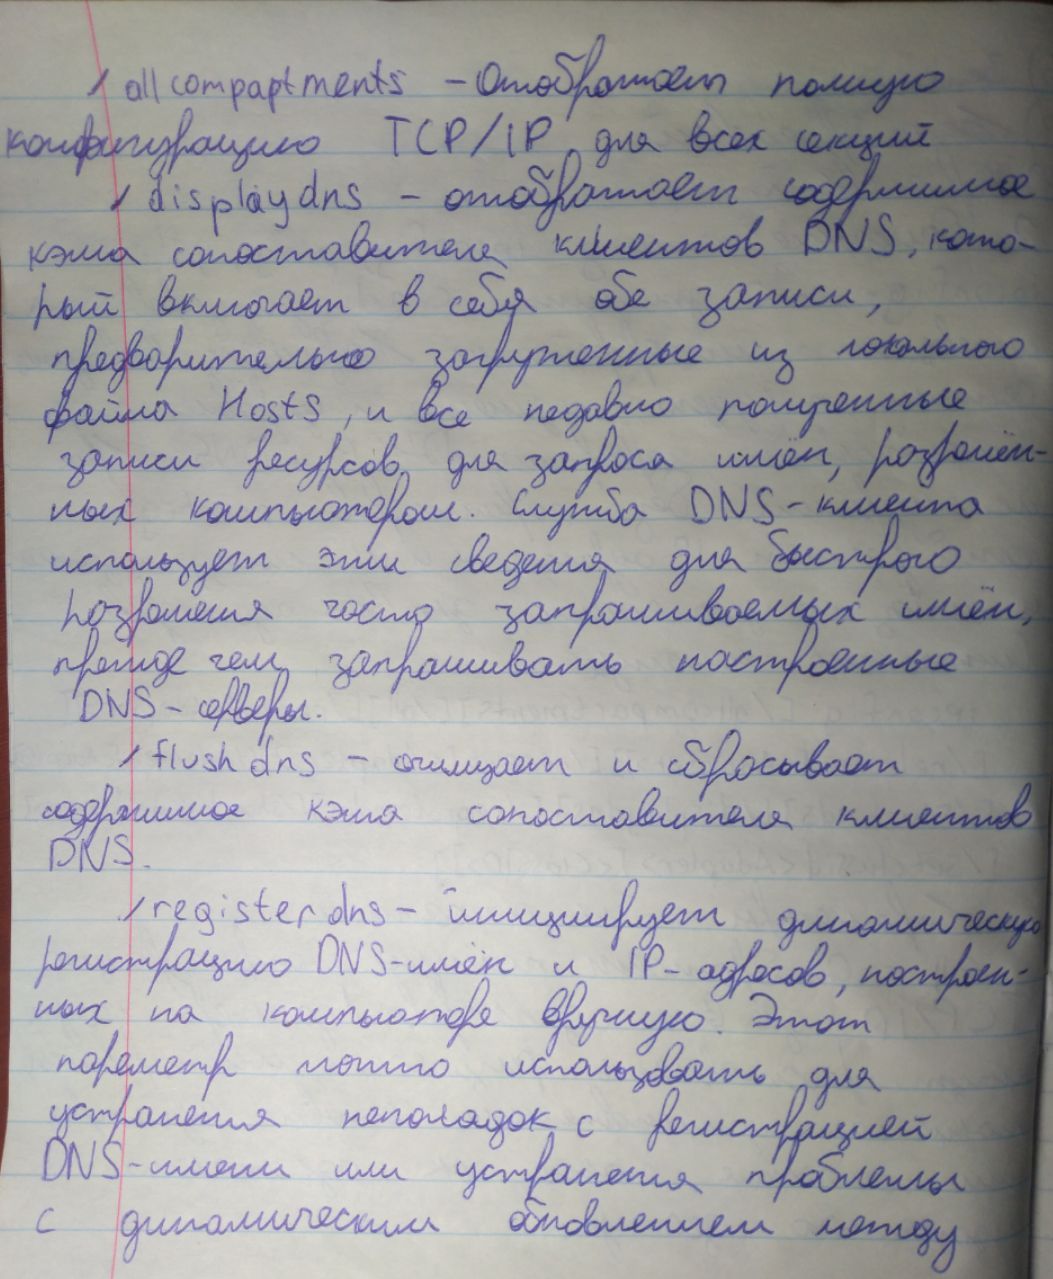 /allcompaptments – Отображает полную
конфигурацию TCP/IP для всех секций
/displaydns – отображает содержимое
кэша сопоставителя клиентов DNS, кото-
рый включает в себя обе записи,
предварительно загруженные из локального
файла Hosts, и все недавно полученные
записи ресурсов для запроса имён, разрешён-
ных компьютером. Служба DNS-клиента
использует эти сведения для быстрого
разрешения часто запрашиваемых имён,
прежде чем запрашивать настроенные
DNS-серверы.
/flushdns – очищает и сбрасывает
содержимое кэша сопоставителя клиентов
DNS.
/registerdns – инициирует динамическую
регистрацию DNS-имён и IP-адресов, настроен-
ных на компьютере вручную. Этот
параметр можно использовать для
устранения неполадок с регистрацией
DNS-имени или устранения проблемы
с динамическим обновлением между